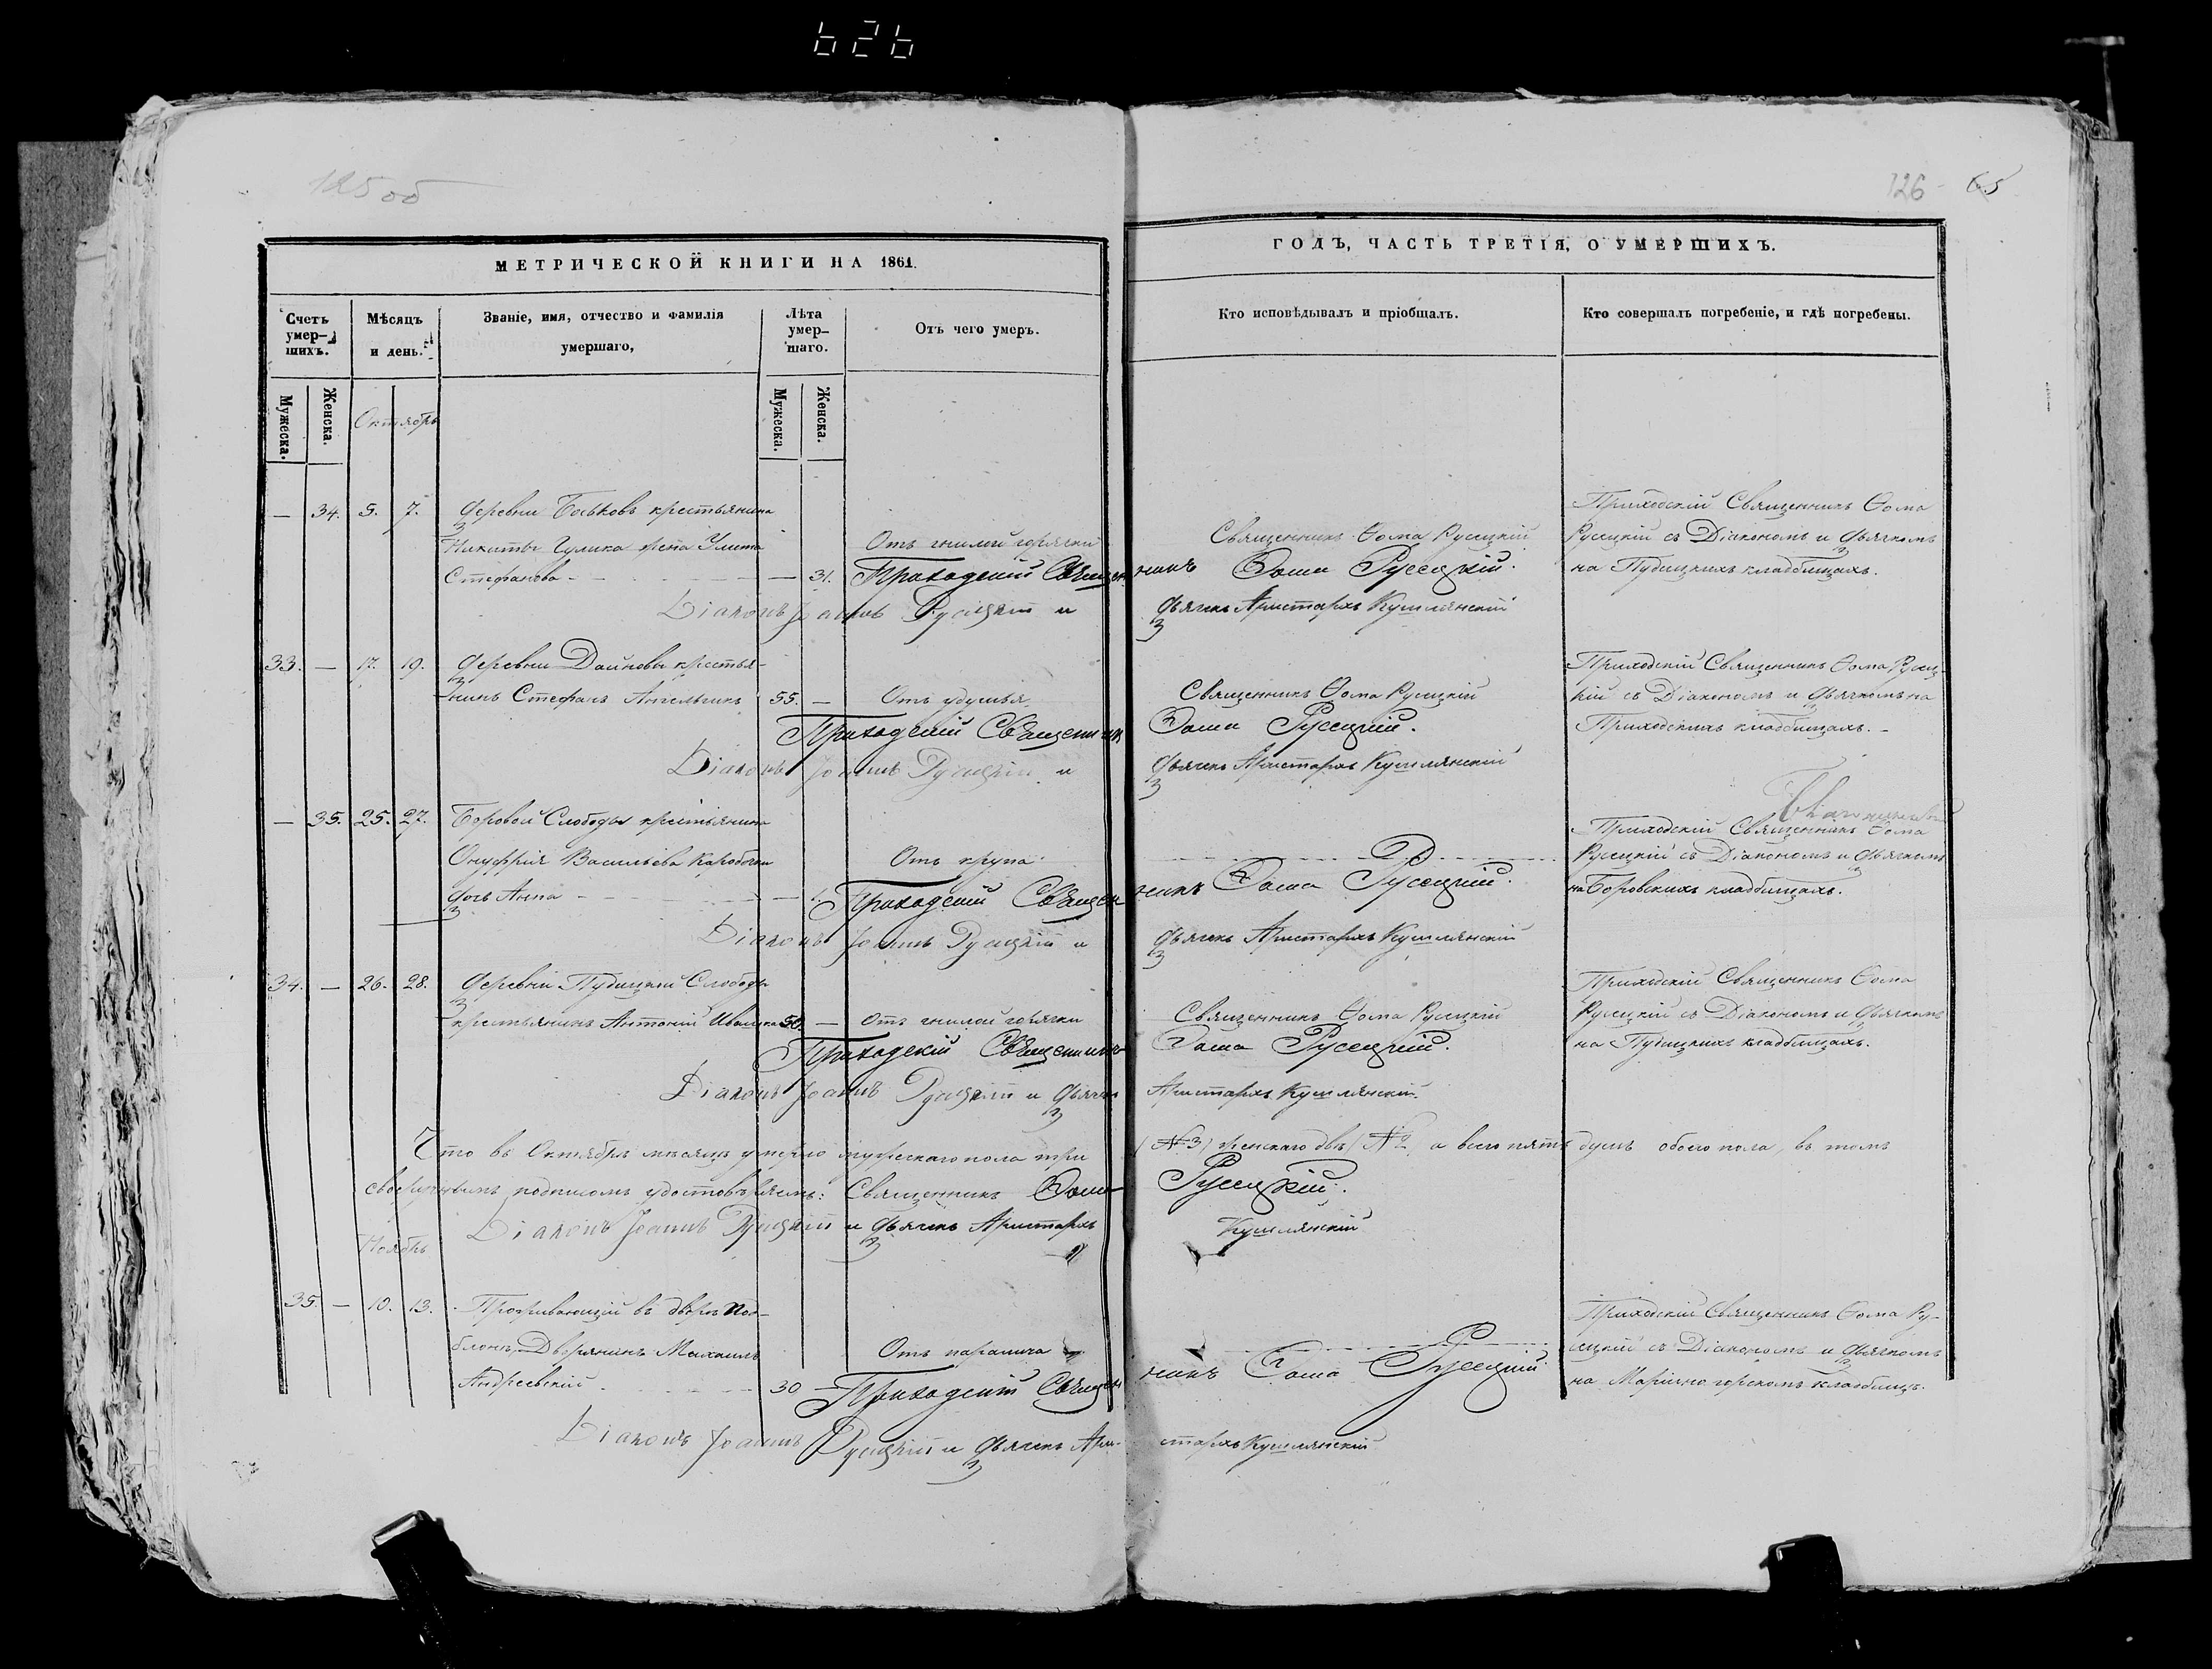 626
125 об
126
65
МЕТРИЧЕСКОЙ КНИГИ НА 1861.
ГОДЪ, ЧАСТЬ ТРЕТІЯ, О УМЕРШИХЪ.
Счетъ умер-шихъ.
Мѣсяцъ и день.
Званіе, имя, отчество и фамилія умершаго,
Лѣта умер-шаго.
Отъ чего умеръ.
Кто исповѣдывалъ и пріобщалъ.
Кто совершалъ погребеніе, и гдѣ погребены.
Мужеска.
Женска.
Октябрь
Мужеска.
Женска.
— 34. 5. 7. Деревни Боьковъ крестьянина
Никиты Гулика жена Улита
Стефанова — 31.
Отъ гнилой горячки
Священникъ Ѳома Русецкій
Приходскій Священникъ Ѳома
Русецкій съ Діакономъ и Дьячкомъ
на Пудицкихъ кладбищахъ.
Приходскій Священникъ Ѳома Русецкій.
Діаконъ Іоаннъ Русецкій и Дьячекъ Аристархъ Кушлянскій
33. — 17. 19. Деревни Дайновы крестья-
нинъ Стефанъ 55. —
Отъ удушья
Священникъ Ѳома Русецкій
Приходскій Священникъ Ѳома Русец-
кій съ Діакономъ и Дьячкомъ на
Приходскихъ кладбищахъ. —
Приходскій Священникъ Ѳома Русецкій.
Діаконъ Іоаннъ Русецкій и Дьячекъ Аристархъ Кушлянскій
— 35. 25. 27. Боровой Слободы крестьянина
Онуфрія Васильева Коробочки
дочь Анна
Отъ крупа
Приходскій Священникъ Ѳома
Русецкій съ Діакономъ и Дьячкомъ
на Боровскихъ кладбищахъ.
Приходскій Священникъ Ѳома Русецкій.
Діаконъ Іоаннъ Русецкій и Дьячекъ Аристархъ Кушлянскій
34. — 26. 28. Деревни Пудицкой Слободы
крестьянинъ Антоній 50. —
Отъ гнилой горячки
Священникъ Ѳома Русецкій
Приходскій Священникъ Ѳома
Русецкій съ Діакономъ и Дьячкомъ
на Пудицкихъ кладбищахъ.
Приходскій Священникъ Ѳома Русецкій.
Діаконъ Іоаннъ Русецкій и Дьячекъ Аристархъ Кушлянскій.
Что въ Октябрѣ мѣсяцѣ умерло мужескаго пола три (№ 3) женскаго двѣ (№ 2 а всего пять душъ обоего пола, въ томъ
своеручнымъ подписомъ удостовѣряемъ: Священникъ Ѳома Русецкій.
Діаконъ Іоаннъ Русецкій и Дьячекъ Аристархъ Кушлянскій
Ноябрь
35. — 10. 13. Проживающій въ дворѣ
Дворянинъ Михаилъ
Андреевскій 30 —
Отъ паралича
Приходскій Священникъ Ѳома Ру-
сецкій съ Діакономъ и Дьячкомъ
на Маріино горскомъ кладбищѣ.
Приходскій Священникъ Ѳома Русецкій
Діаконъ Іоаннъ Русецкій и Дьячекъ Ари-стархъ Кушлянскій